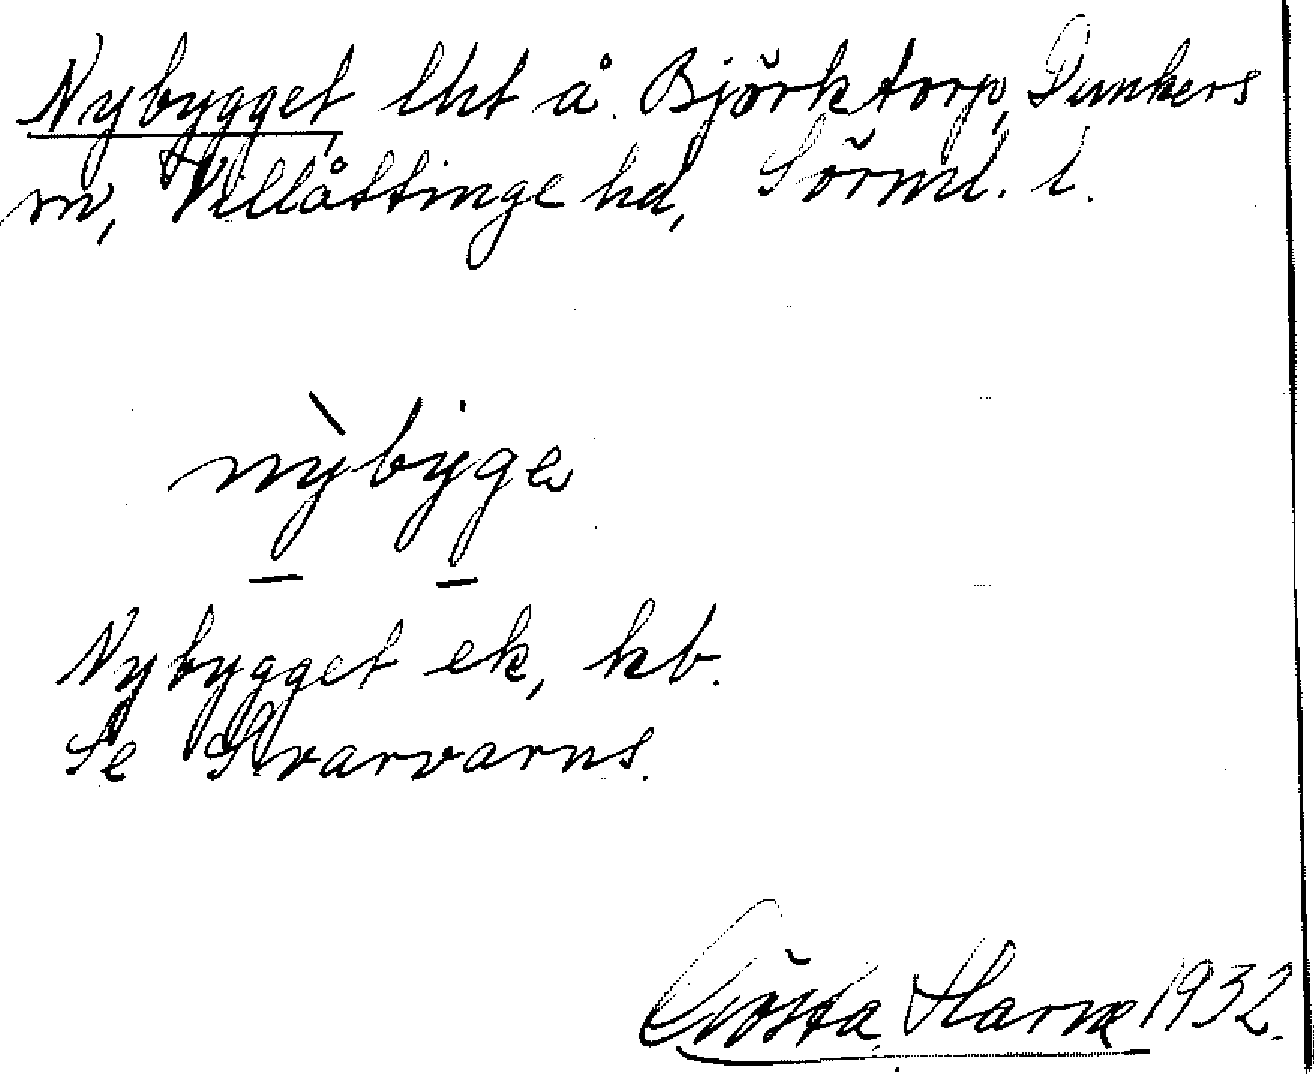 Nybygget, lht å Björktorp, Dunkers
sn, Villåttinge hd, Sörml. l.
nỳbyge
Nybygget ek, kb.
Se Svarvarns.
Gösta Harne 1932.